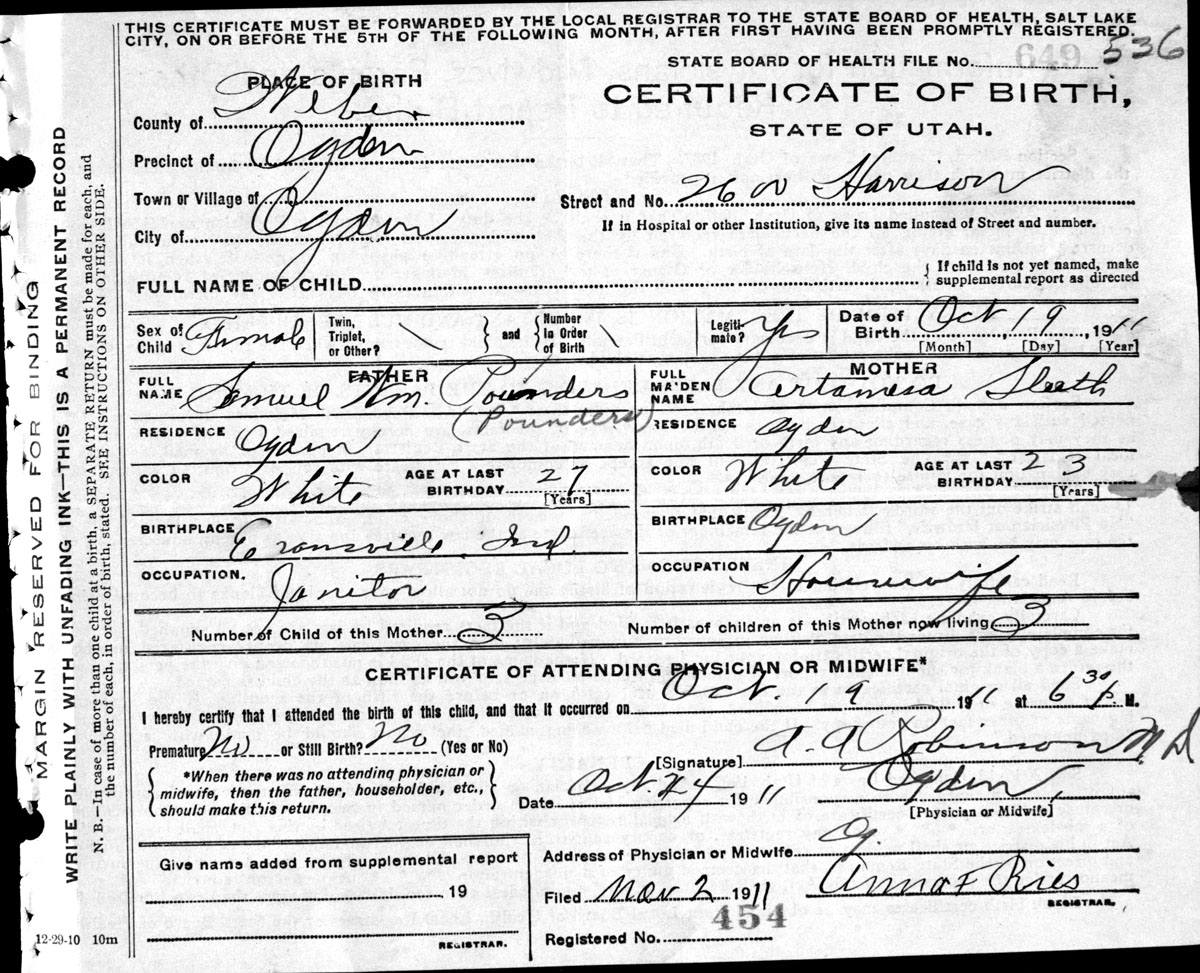 THIS CERTIFICATE MUST BE FORWARDED BY THE LOCAL REGISTRAR TO THE STATE BOARD OF HEALTH, SALT LAKE
CITY, ON OR BEFORE THE 5TH OF THE FOLLOWING MONTH, AFTER FIRST HAVING BEEN PROMPTLY REGISTERED.
STATE BOARD OF HEALTH FILE No. 649 536
PLACE OF BIRTH
CERTIFICATE OF BIRTH,
STATE OF UTAH.
County of Weber
Precinct of Ogden
Town or Village of
Street and No. 2600 Harrison
City of Ogden
If in Hospital or other Institution, give its name instead of Street and number.
FULL NAME OF CHILD
If child is not yet named, make
supplemental report as directed
Sex of Child Female
Twin, Triplet, or Other? and Number In Order of Birth
Legitimate? Yes
Date of Birth Oct 19, 1911
[Month] [Day] [Year]
FATHER
FULL NAME Samuel Wm. Pounders
(Pounders)
RESIDENCE Ogden
COLOR White
AGE AT LAST BIRTHDAY 27
[Years]
BIRTHPLACE Evansville. Ind.
OCCUPATION. Janitor
MOTHER
FULL MAIDEN NAME Sleath
RESIDENCE Ogden
COLOR White
AGE AT LAST BIRTHDAY 23
[Years]
BIRTHPLACE Ogden
OCCUPATION Housewife
Number of Child of this Mother 3
Number of children of this Mother now living 3
CERTIFICATE OF ATTENDING PHYSICIAN OR MIDWIFE*
I hereby certify that I attended the birth of this child, and that it occurred on Oct. 19 1911 at 6 30 P. M.
Premature No or Still Birth? No (Yes or No)
[Signature] A. A. Robinson M D
*When there was no attending physician or
midwife, then the father, householder, etc.,
should make this return.
Date Oct. 24 1911
Ogden,
[Physician or Midwife]
Address of Physician or Midwife Og.
Give name added from supplemental report
19
REGISTRAR.
Filed Nov 2 1911
Anna F Ries
REGISTRAR.
454
Registered No.
12-29-10 10m
MARGIN RESERVED FOR BINDING
WRITE PLAINLY WITH UNFADING INK—THIS IS A PERMANENT RECORD
N. B.—In case of more than one child at a birth, a SEPARATE RETURN must be made for each, and
the number of each, in order of birth, stated. SEE INSTRUCTIONS ON OTHER SIDE.